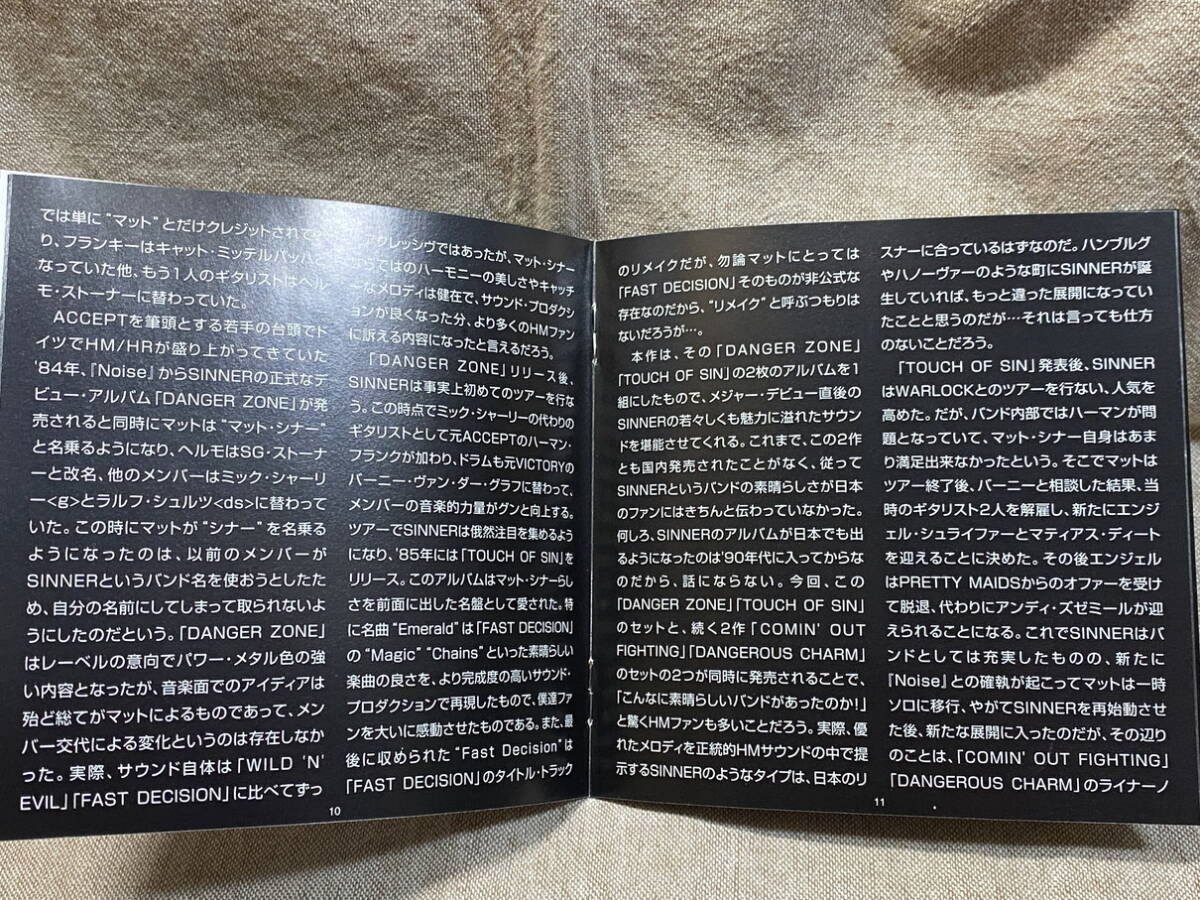 では単に“マット”とだけクレジットされてお
り、フランキーはキャット・ミッテルバッハと
なっていた他、もう1人のギタリストはヘル
モ・ストーナーに替わっていた。
ACCEPTを筆頭とする若手の台頭でド
イツでHM/HRが盛り上がってきていた
'84年、『Noise』からSINNERの正式なデ
ビュー・アルバム「DANGER ZONE」が発
売されると同時にマットは“マット・シナー”
と名乗るようになり、ヘルモはSG・ストーナ
ーと改名、他のメンバーはミック・シャーリ
ー<g>とラルフ・シュルツ<ds>に替わって
いた。この時にマットが“シナー”を名乗る
ようになったのは、以前のメンバーが
SINNERというバンド名を使おうとしたた
め、自分の名前にしてしまって取られないよ
うにしたのだという。「DANGER ZONE」
はレーベルの意向でパワー・メタル色の強
い内容となったが、音楽面でのアイディアは
殆ど総てがマットによるものであって、メン
バー交代による変化というのは存在しなか
った。実際、サウンド自体は「WILD 'N'
EVIL」「FAST DECISION」に比べてずっ
10
グレッシヴではあったが、マット・シナー
らではのハーモニーの美しさやキャッチ
ーなメロディは健在で、サウンド・プロダクシ
ョンが良くなった分、より多くのHMファン
に訴える内容になったと言えるだろう。
「DANGER ZONE」リリース後、
SINNERは事実上初めてのツアーを行な
う。この時点でミック・シャーリーの代わりの
ギタリストとして元ACCEPTのハーマン・
フランクが加わり、ドラムも元VICTORYの
バーニー・ヴァン・ダー・グラフに替わって、
メンバーの音楽的力量がグンと向上する。
ツアーでSINNERは俄然注目を集めるよう
になり、'85年には「TOUCH OF SIN」を
リリース。このアルバムはマット・シナーらし
さを前面に出した名盤として愛された。特
に名曲“Emerald”は「FAST DECISION」
の“Magic”“Chains”といった素晴らしい
楽曲の良さを、より完成度の高いサウンド・
プロダクションで再現したもので、僕達ファ
ンを大いに感動させたものである。また、最
後に収められた“Fast Decision”は
「FAST DECISION」のタイトル・トラック
のリメイクだが、勿論マットにとっては
「FAST DECISION」そのものが非公式な
存在なのだから、“リメイク”と呼ぶつもりは
ないだろうが…。
本作は、その「DANGER ZONE」
「TOUCH OF SIN」の2枚のアルバムを1
組にしたもので、メジャー・デビュー直後の
SINNERの若々しくも魅力に溢れたサウン
ドを堪能させてくれる。これまで、この2作
とも国内発売されたことがなく、従って
SINNERというバンドの素晴らしさが日本
のファンにはきちんと伝わっていなかった。
何しろ、SINNERのアルバムが日本でも出
るようになったのは'90年代に入ってからな
のだから、話にならない。今回、この
「DANGER ZONE」「TOUCH OF SIN」
のセットと、続く2作「COMIN' OUT
FIGHTING」「DANGEROUS CHARM」
のセットの2つが同時に発売されることで、
「こんなに素晴らしいバンドがあったのか!」
と驚くHMファンも多いことだろう。実際、優
れたメロディを正統的HMサウンドの中で提
示するSINNERのようなタイプは、日本のリ
11
スナーに合っているはずなのだ。ハンブルグ
やハノーヴァーのような町にSINNERが誕
生していれば、もっと違った展開になってい
たことと思うのだが…それは言っても仕方
のないことだろう。
「TOUCH OF SIN」発表後、SINNER
はWARLOCKとのツアーを行ない、人気を
高めた。だが、バンド内部ではハーマンが問
題となっていて、マット・シナー自身はあま
り満足出来なかったという。そこでマットは
ツアー終了後、バーニーと相談した結果、当
時のギタリスト2人を解雇し、新たにエンジ
ェル・シュライファーとマティアス・ディート
を迎えることに決めた。その後エンジェル
はPRETTY MAIDSからのオファーを受け
て脱退、代わりにアンディ・ズゼミールが迎
えられることになる。これでSINNERはバ
ンドとしては充実したものの、新たに
『Noise』との確執が起こってマットは一時
ソロに移行、やがてSINNERを再始動させ
た後、新たな展開に入ったのだが、その辺り
のことは、「COMIN' OUT FIGHTING」
「DANGEROUS CHARM」のライナーノ